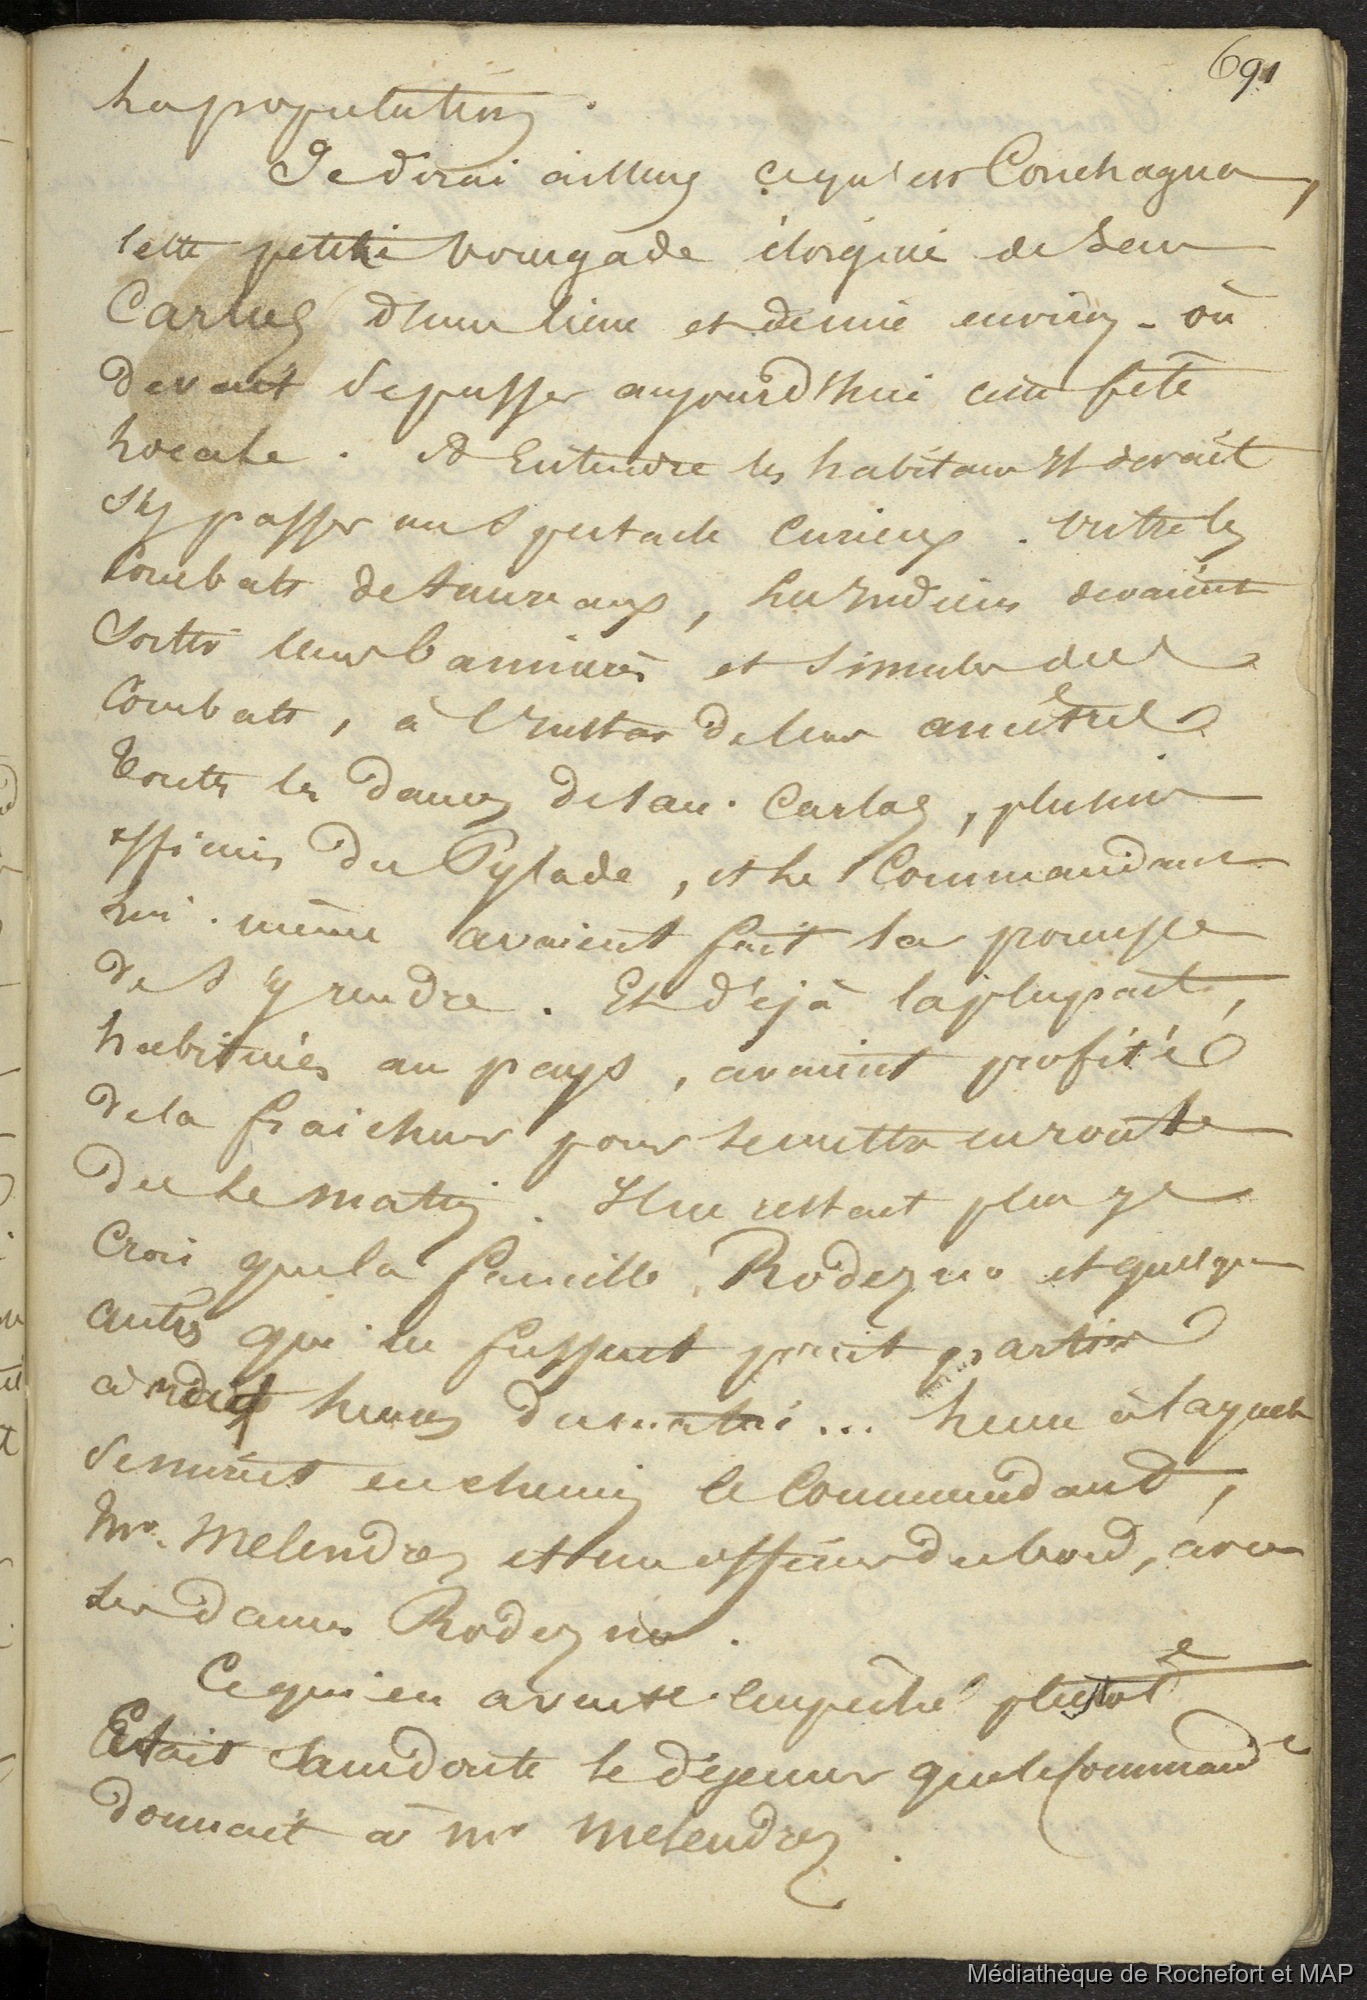 691
la population.
Je dirai ailleurs ce qu'est Conchagua,
cette petite bourgade éloigné de San
Carlos d'une lieue et demie environ - où
devait se passer aujourd'hui cette fête
locale. A Entendre les habitans Il devait
s'y passer un Spectacle Curieux. Outre les
Combats de taureaux, les Indiens devaient
Sortir leurs bannières et simuler des
Combats, à l'Instar de leurs ancêtres.
Toutes les dames de San-Carlos, plusieurs
officiers du Pylade, et le Commandant
lui-même avaient fait la promesse
de s'y rendre. Et déjà la plupart,
habitués au pays, avaient profité
de la fraicheur pour se mettre en route
dès le matin. Il ne restait plus je
Crois que la famille Rodezno et quelques
autres qui ne fussent point partis
à dix heures du matin... heure à laquelle
se mirent en chemin le Commandant,
Mr. Melendrez et un officier du bord, avec
les dames Rodezno.
Ce qui en avait empêché plutôt
Etait sans doute le déjeuner que le Commandt
donnait à Mr Melendrez.
Médiathèque de Rochefort et MAP